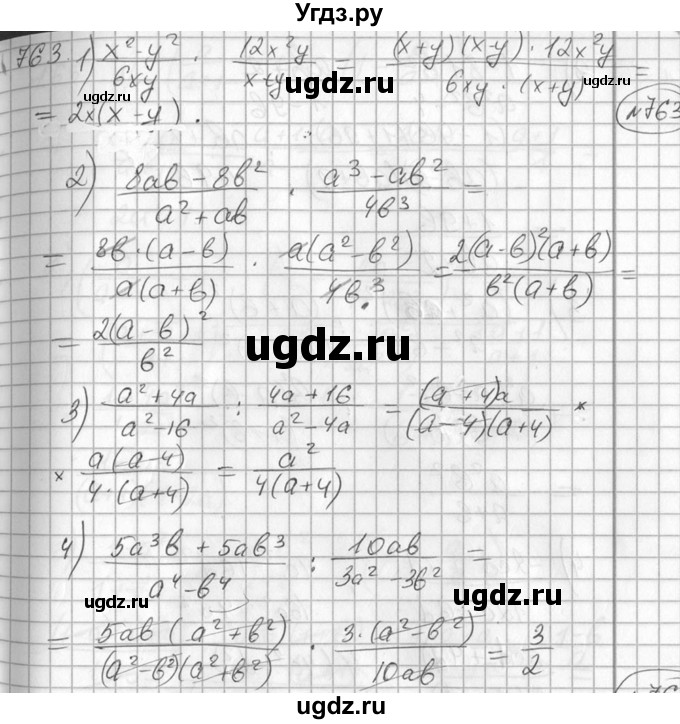 Угдз.ру
763 1) (x² - y²)/(6xy) · (12x²y)/(x+y) = ((x+y)(x-y) · 12x²y)/(6xy · (x+y)) =
ugdz.ru
ugdz.ru
ugdz.ru
= 2x(x - y).
№763
2) (8ab - 8b²)/(a² + ab) · (a³ - ab²)/(4b³) =
= (8b · (a - b))/(a(a + b)) · (a(a² - b²))/(4b³) = (2(a - b)²(a + b))/(b²(a + b)) =
= (2(a - b)²)/(b²)
ugdz.ru
3) (a² + 4a)/(a² - 16) : (4a + 16)/(a² - 4a) = ((a + 4)a)/((a - 4)(a + 4)) ×
× (a(a - 4))/(4 · (a + 4)) = (a²)/(4(a + 4))
4) (5a³b + 5ab³)/(a⁴ - b⁴) : (10ab)/(3a² - 3b²) =
ugdz.ru
ugdz.ru
= (5ab(a² + b²))/((a² - b²)(a² + b²)) · (3 · (a² - b²))/(10ab) = 3/2
ugdz.ru
ugdz.ru